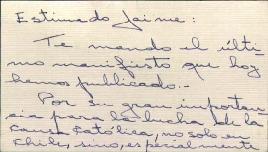 Estimado Jaime:
Te mando el últi-
mo manifiesto que hoy
hemos publicado.-
Por su gran importan-
cia para la lucha de la
Causa Católica, no solo en
Chile, sino, especialmente